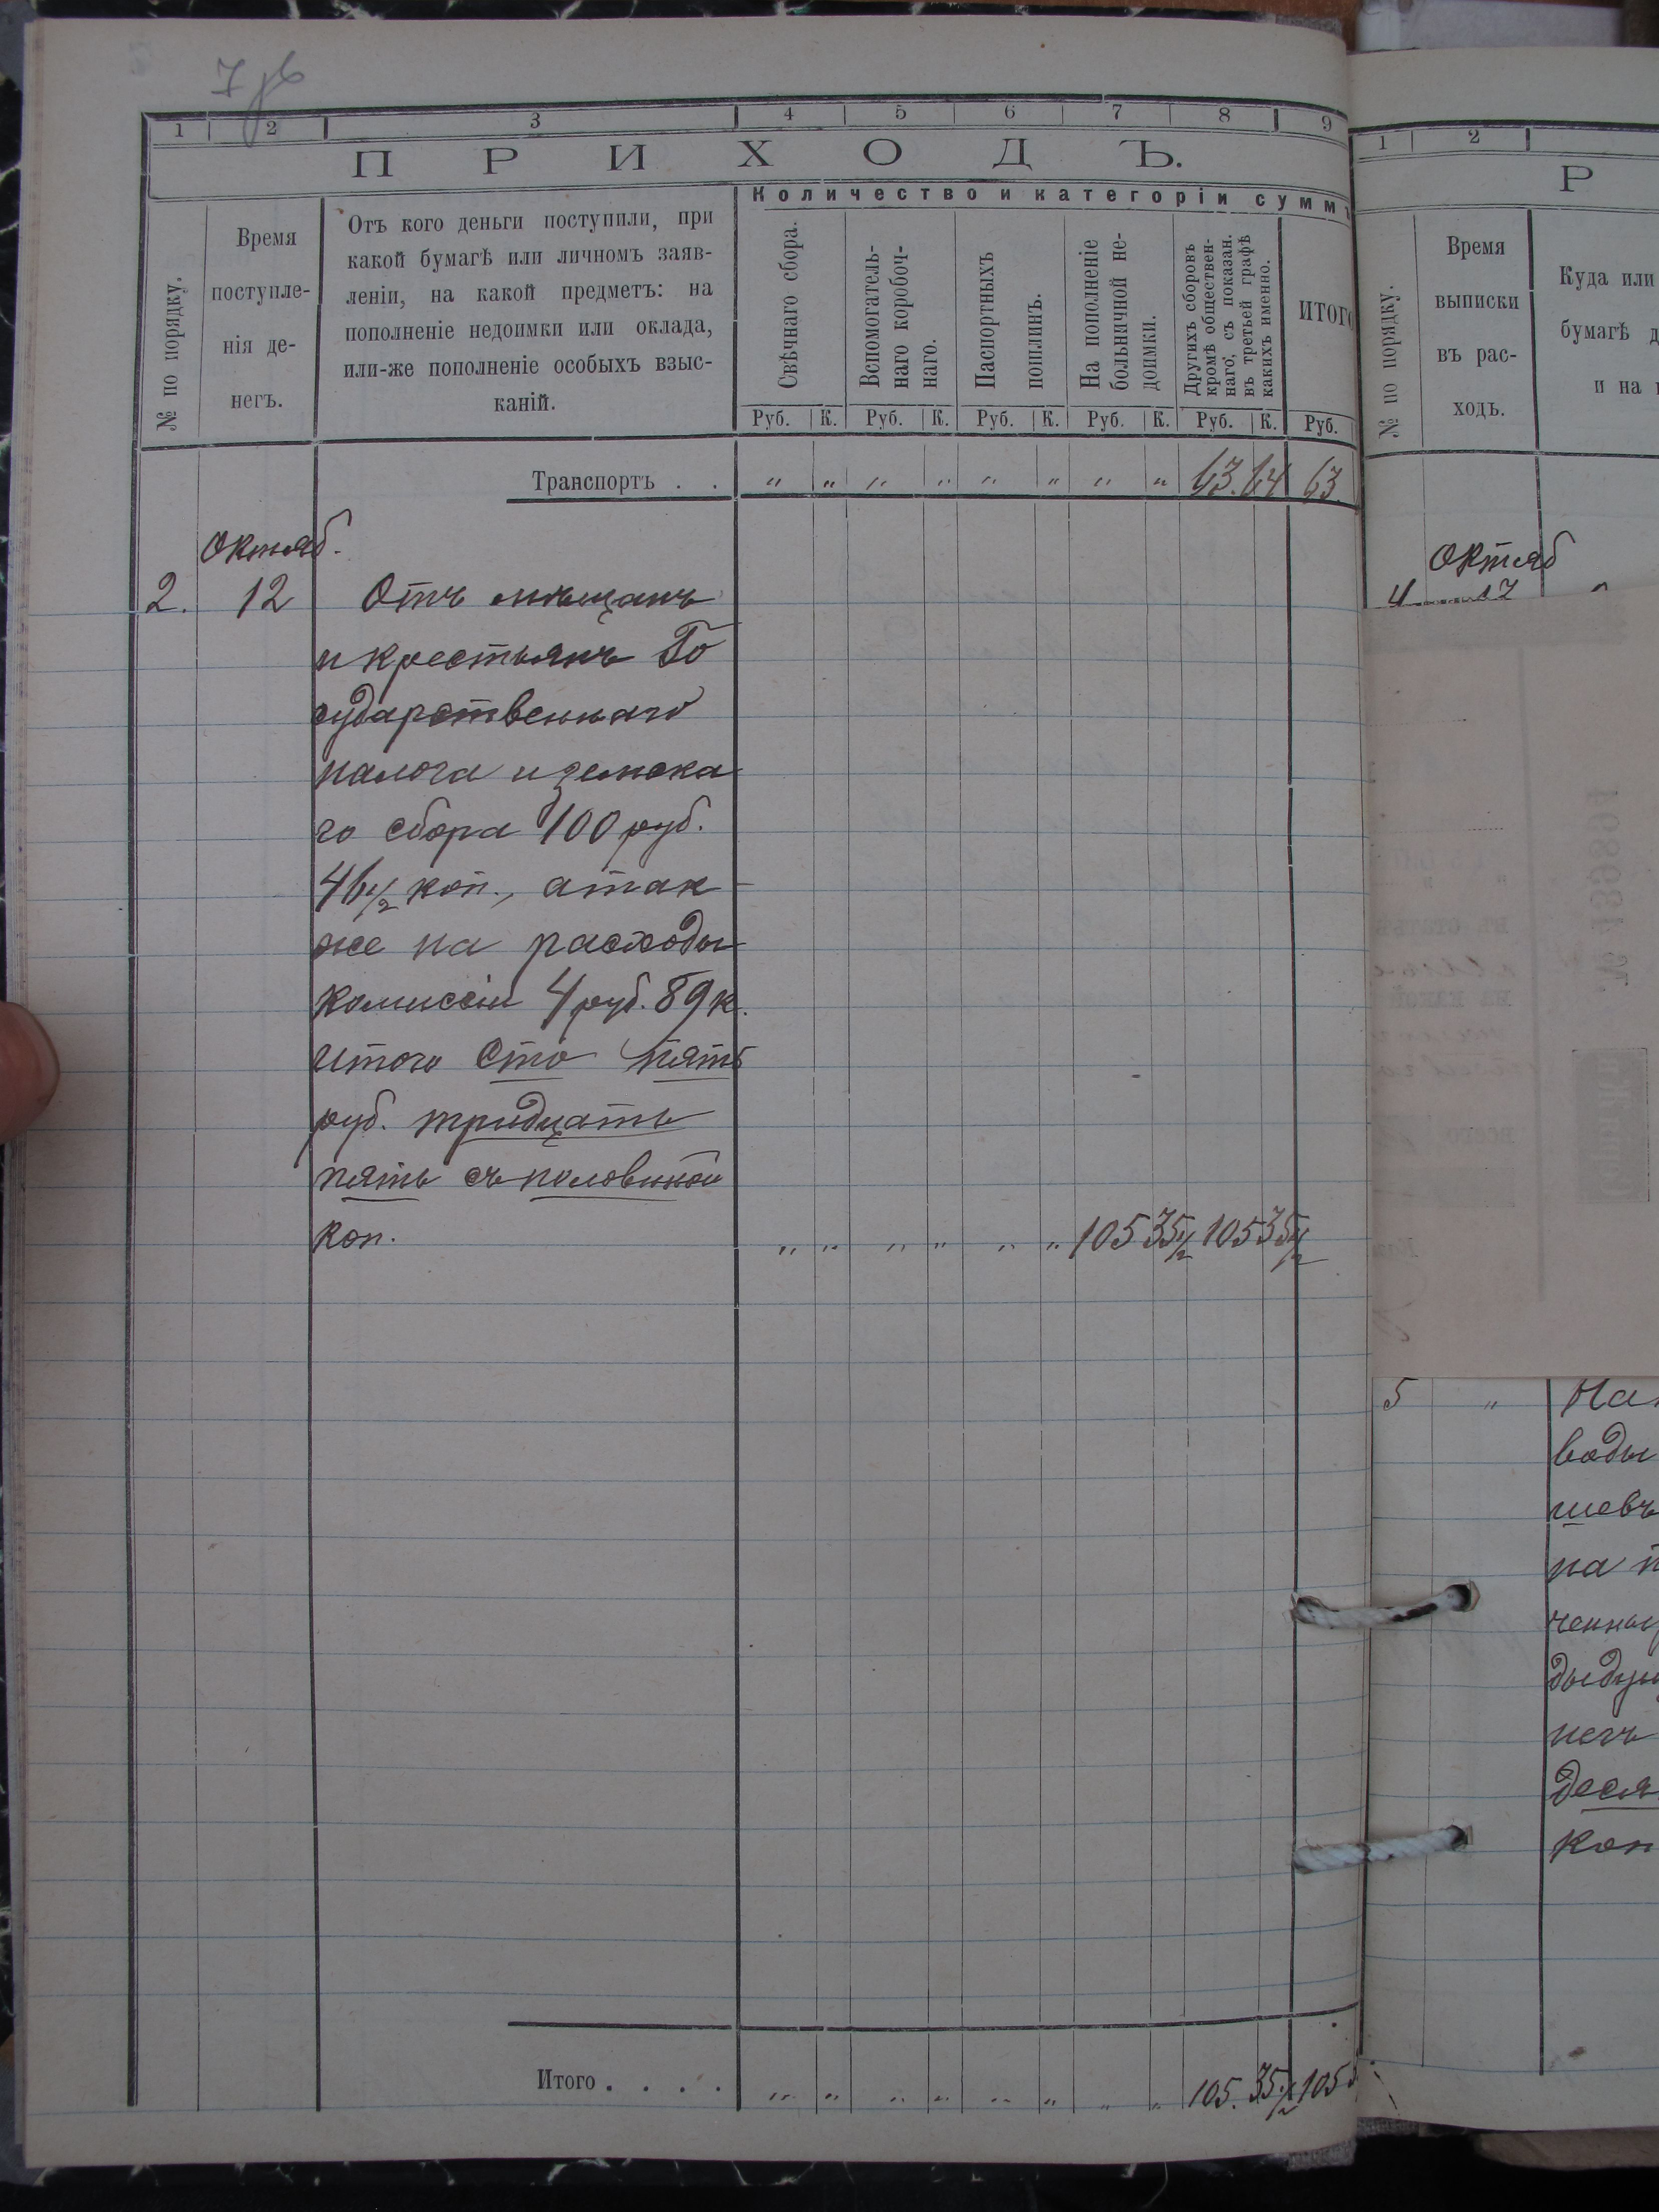 1 2 3 4 5 6 7 8 9
ПРИХОДЪ.
№ по порядку.
Время
поступле-
нія де-
негъ.
Отъ кого деньги поступили, при
какой бумагѣ или личномъ заяв-
леніи, на какой предметъ: на
пополненіе недоимки или оклада,
или-же пополненіе особыхъ взыс-
каній.
Количество и категоріи суммъ
Свѣчнаго сбора.
Вспомогатель-
наго коробоч-
наго.
Паспортныхъ
пошлинъ.
На пополненіе
больничной не-
доимки.
Другихъ сборовъ
кромѣ обществен-
наго, съ показан.
въ третьей графѣ
какихъ именно.
ИТОГО
Руб. К. Руб. К. Руб. К. Руб. К. Руб. К. Руб.
Транспортъ . . " " " " " " " " 63. 64 63
Октяб.
2. 12 Отъ мѣщанъ
и крестьянъ Го
сударственнаго
налога и земска
го сбора 100 руб.
46 1/2 коп., а так
же на расходы
комиссіи 4 руб. 89 к.
итого сто пять
руб. тридцать
пять съ половиной
коп. " " " " " " 105 35 1/2 105 35 1/2
Итого . . . . " " " " " " " " 105. 35 1/2 105
1 2
Р
№ по порядку.
Время
выписки
въ рас-
ходъ.
Куда или
бумагѣ д
и на
Октяб
4 12
5 "
воды
шевъ
на п
негъ
деся
коп